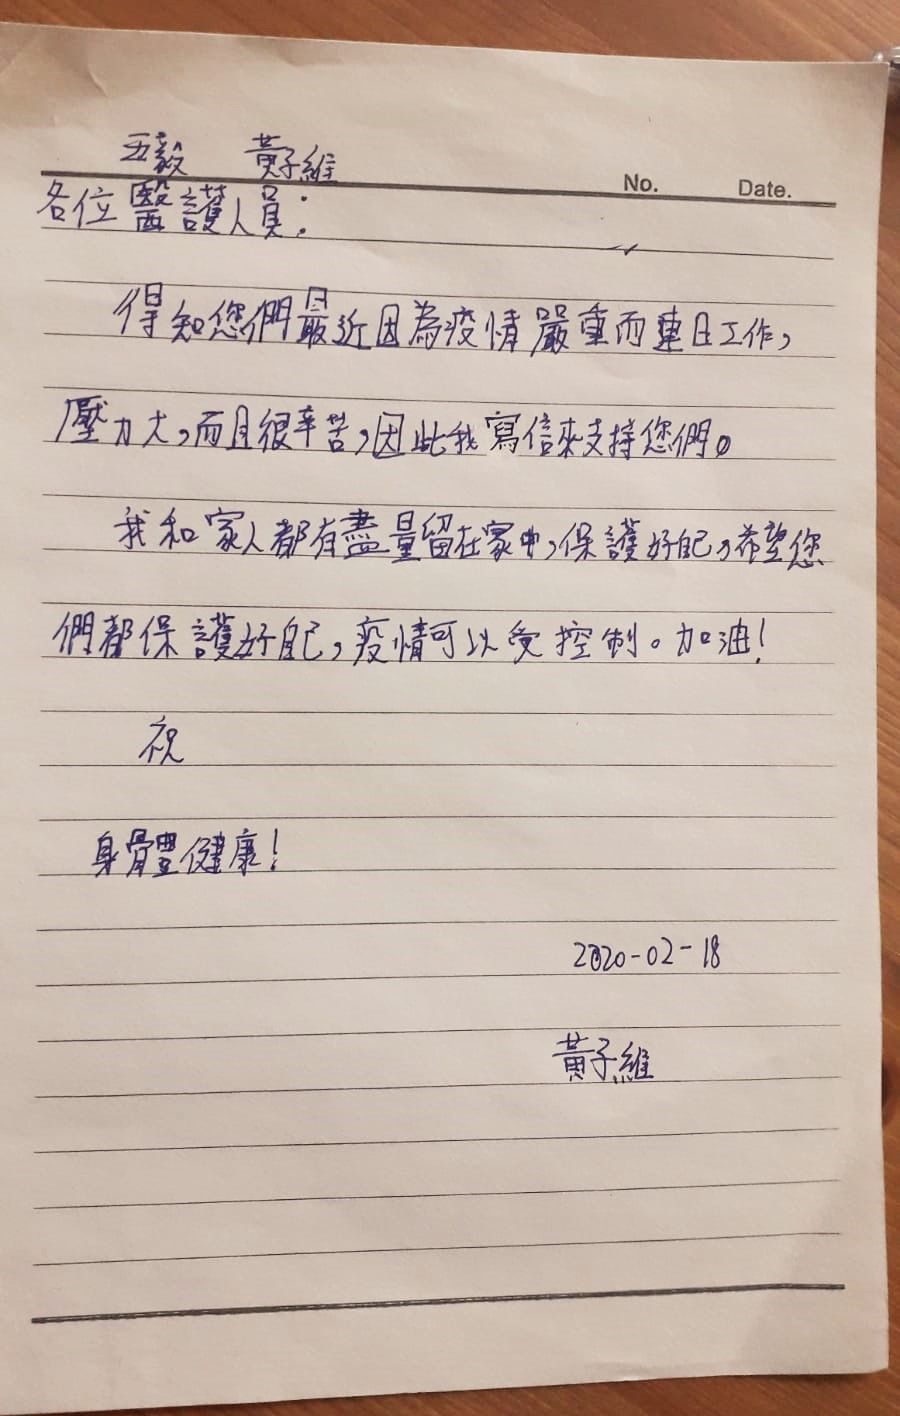 五毅 黃子維
No. Date.
各位醫護人員：
得知您們最近因為疫情嚴重而連日工作，
壓力大，而且很辛苦，因此我寫信來支持您們。
我和家人都有盡量留在家中，保護好自己，希望您
們都保護好自己，疫情可以受控制。加油！
祝
身體健康！
2020-02-18
黃子維